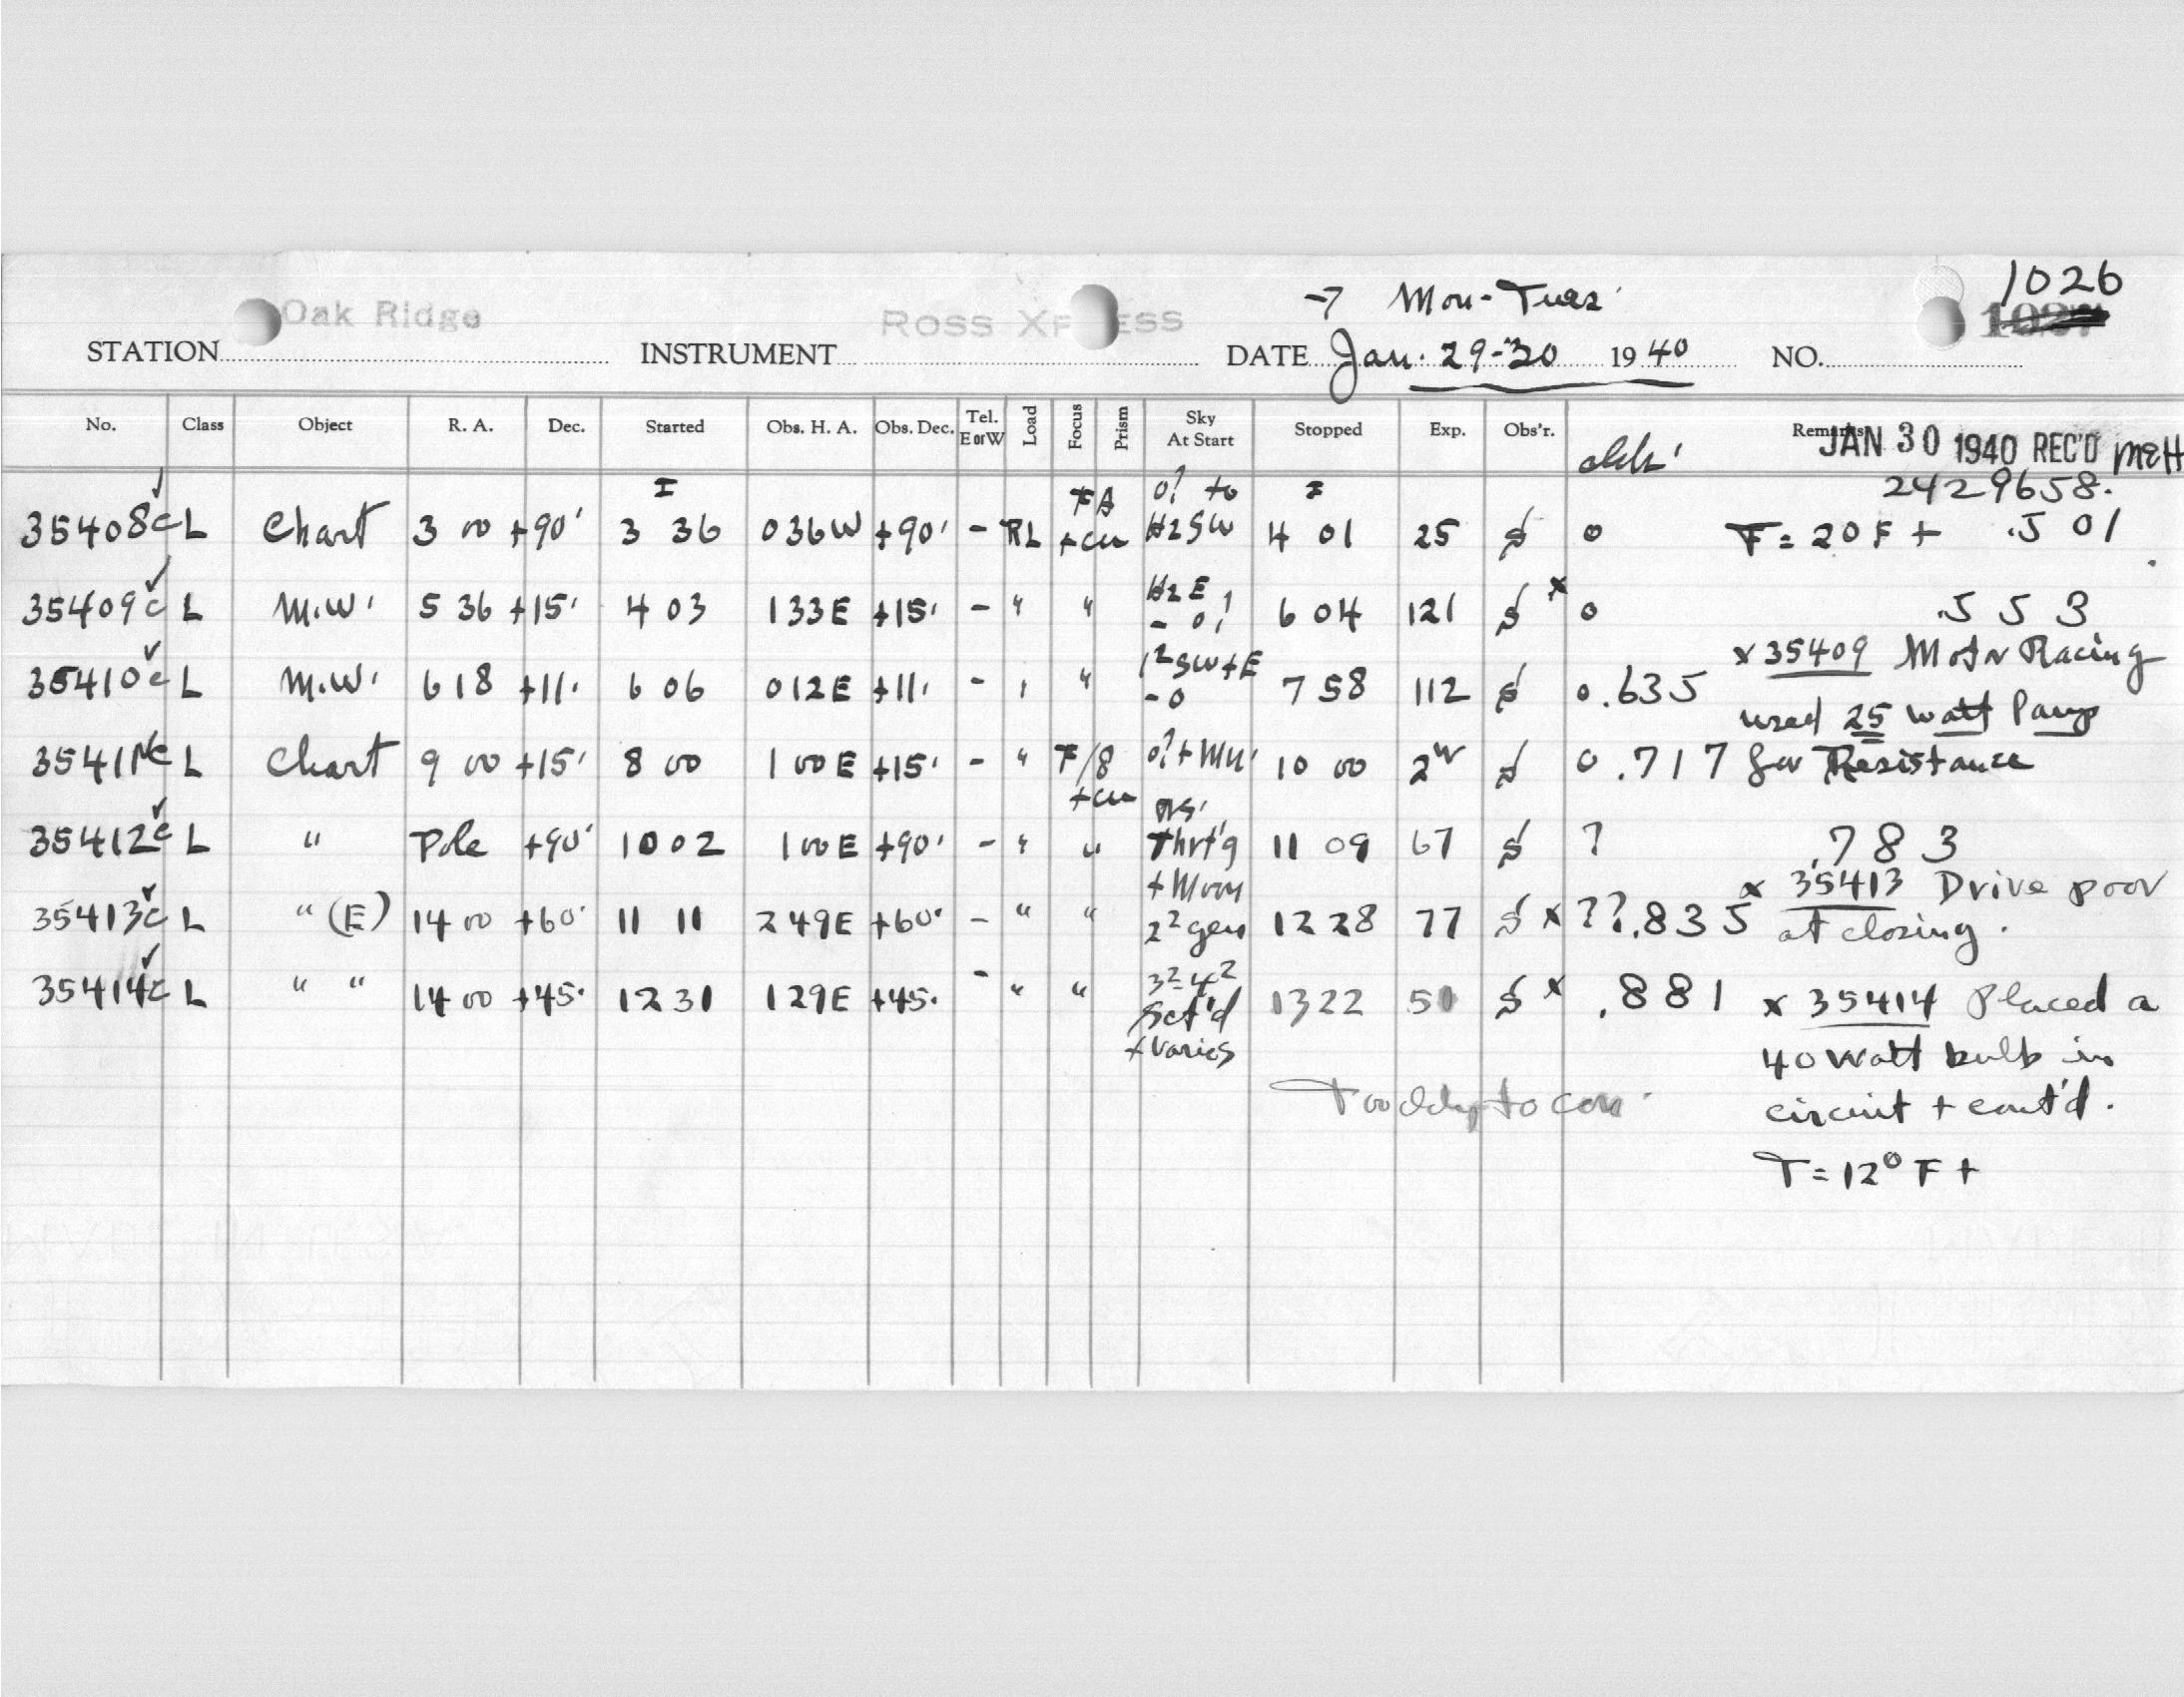 → Mon-Tues 1026
Oak Ridge
STATION INSTRUMENT DATE Jan. 29-30 1940 NO.
No. Class Object R. A. Dec. Started Obs. H. A. Obs. Dec. Tel. E or W Load Focus Prism Sky At Start Stopped Exp. Obs'r. Remarks JAN 30 1940 REC'D McH
2429658.
35408c L Chart 3 00 +90' 3 36 036W +90' - RL 0? to H2SW 4 01 25 0 T = 20 F + .501
35409c L M.W. 5 36 +15' 4 03 133E +15' - " " H2E - 0? 6 04 121 x 0 .553
35410c L M.W. 6 18 +11' 6 06 012E +11' - " " 1² SW+E - 0 7 58 112 0 .635
x 35409 Motor Racing
used 25 watt Lamp
for Resistance
3541 c L Chart 9 00 +15' 8 00 1 00E +15' - " F/8 10 00 0 .717
35412c L " Pole +90' 10 02 1 00E +90' - " " + Moon 11 09 67 ? .783
35413c L " (E) 14 00 +60' 11 11 249E +60' - " " 2² gen 12 28 77 x ?? .835
x 35413 Drive poor
at closing.
35414c L " " 14 00 +45' 12 31 129E +45' - " " 3²-4² Sct'd + varies 13 22 x .881
x 35414 Placed a
40 watt bulb in
circuit + cont'd.
T = 12° F +